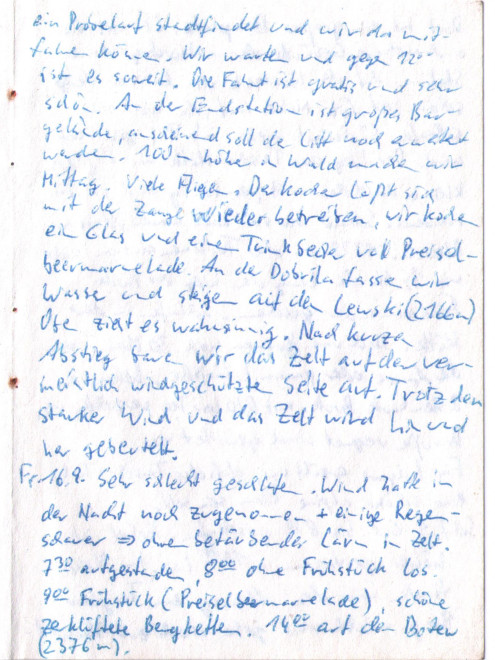 ein Probelauf stattfindet und wir da mit-
fahren können. Wir warten und gegen 12⁰⁰
ist es soweit. Die Fahrt ist gratis und sehr
schön. An der Endstation ist großes Bau-
gelände, anscheinend soll der Lift noch erweitert
werden. 100m höher im Wald machen wir
Mittag. Viele Fliegen. Der Kocher läßt sich
mit der Zange wieder betreiben, wir kochen
ein Glas und einen Trinkbecher voll Preisel-
beermarmelade. An der Dobrila fassen wir
Wasser und steigen auf den Lewski (2166m)
Oben zieht es wahnsinnig. Nach kurzem
Abstieg bauen wir das Zelt auf der ver-
meintlich windgeschützten Seite auf. Trotzdem
starker Wind und das Zelt wird hin und
her gebeutelt.
Fr. 16.9. Sehr schlecht geschlafen. Wind hatte in
der Nacht noch zugenommen + einige Regen-
schauer ⇒ ohrenbetäubender Lärm im Zelt.
7³⁰ aufgestanden, 8⁰⁰ ohne Frühstück los.
9⁰⁰ Frühstück (Preiselbeermarmelade), schöne
zerklüftete Bergketten. 14⁰⁰ auf dem Botev
(2376m).